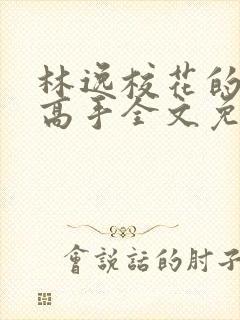 林逸校花的
高手全文免
會說話的肘子